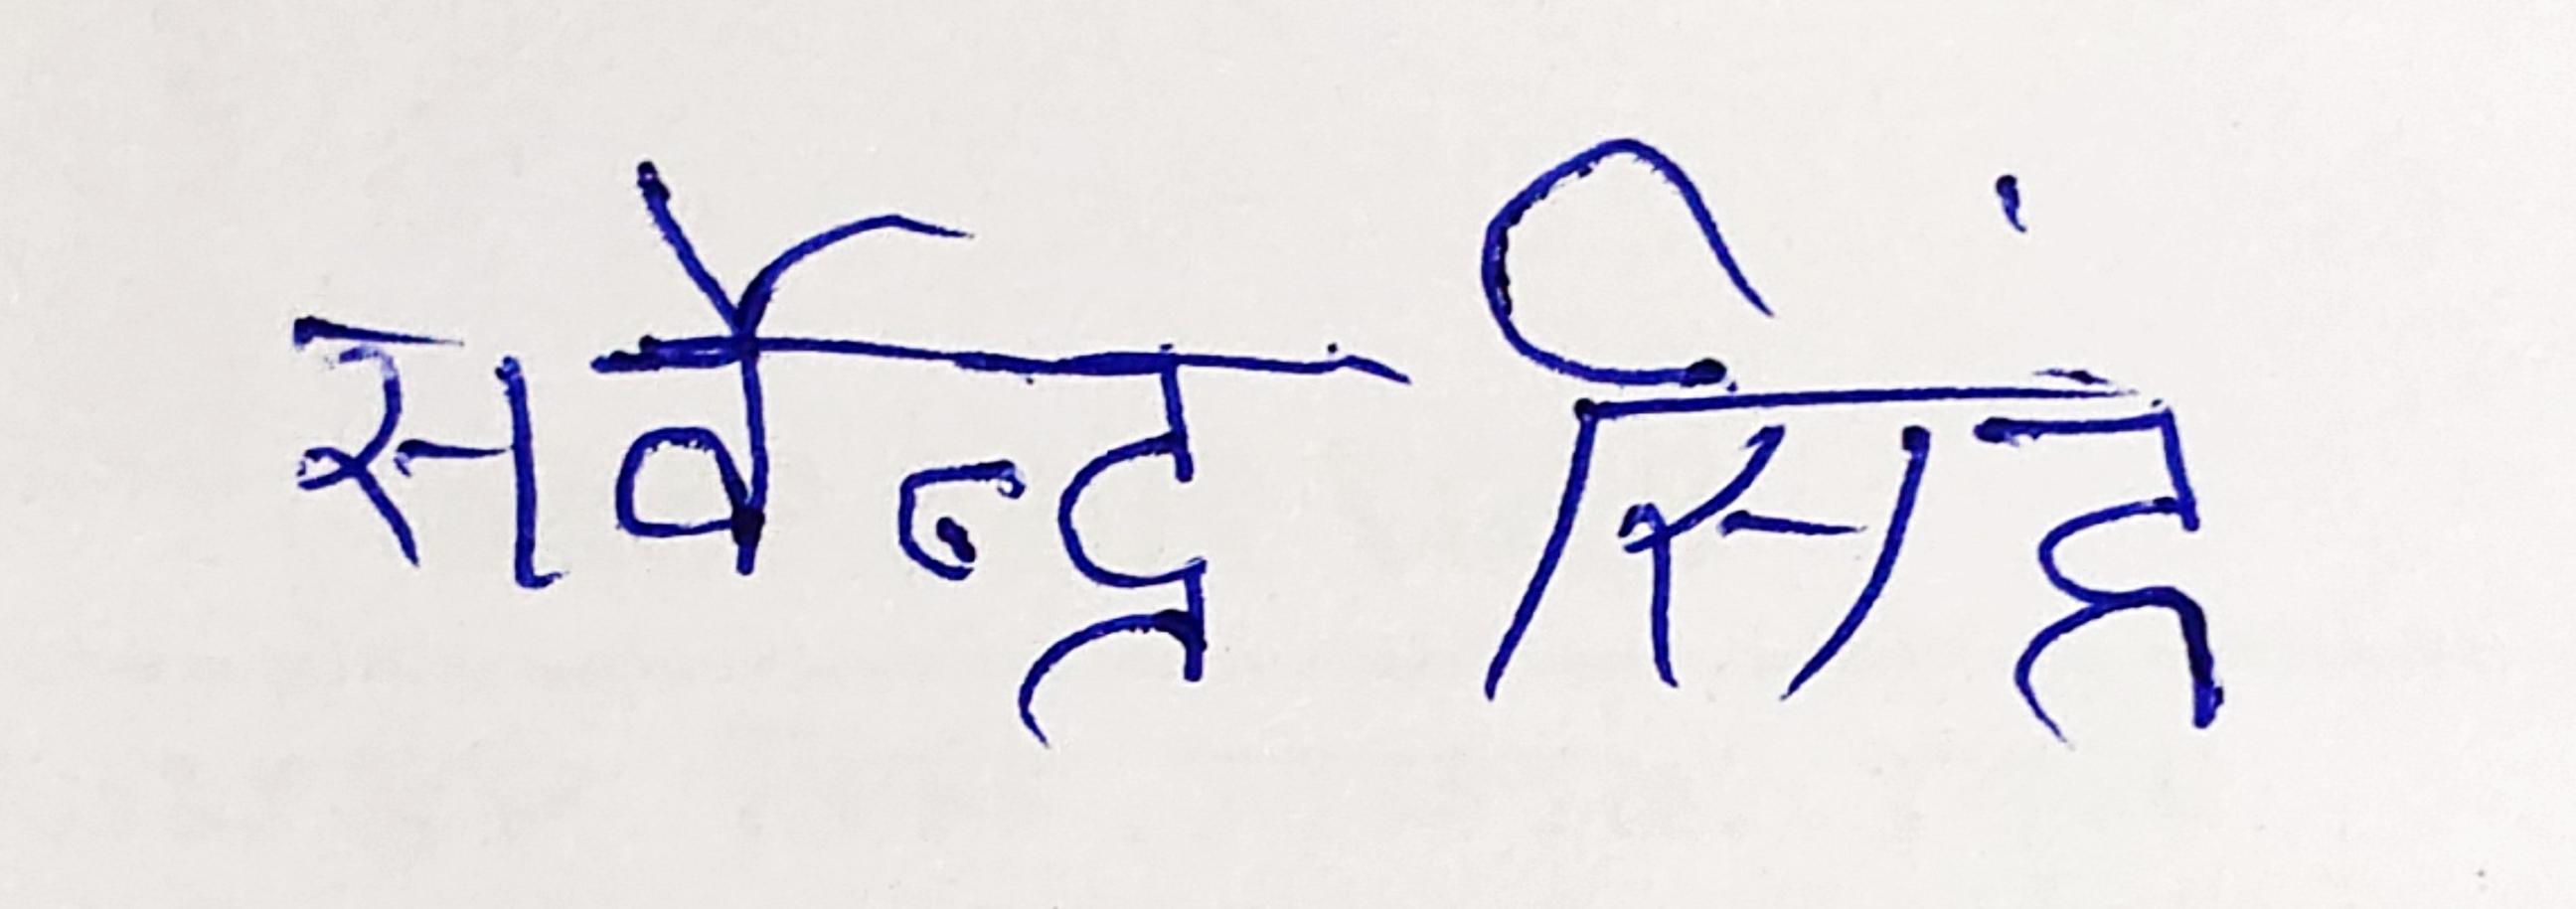 सर्वेन्द्र सिंह